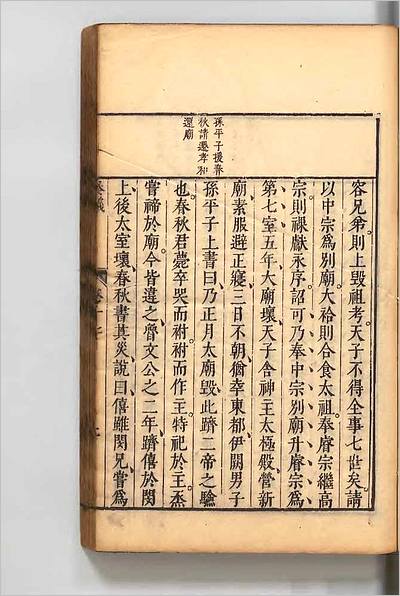 孫平子援春
秋請遷孝和
還廟
容兄弟則上毀祖考天子不得全事七世矣請
以中宗爲別廟大祫則合食太祖奉睿宗繼高
宗則祼獻永序詔可乃奉中宗別廟升睿宗爲
第七室五年大廟壞天子舍神主太極殿營新
廟素服避正寢三日不朝猶幸東都伊闕男子
孫平子上書曰乃正月太廟毀此躋二帝之驗
也春秋君薨卒哭而祔祔而作主特祀於主烝
嘗禘於廟今皆違之魯文公之二年躋僖於閔
上後太室壞春秋書其災說曰僖雖閔兄嘗爲